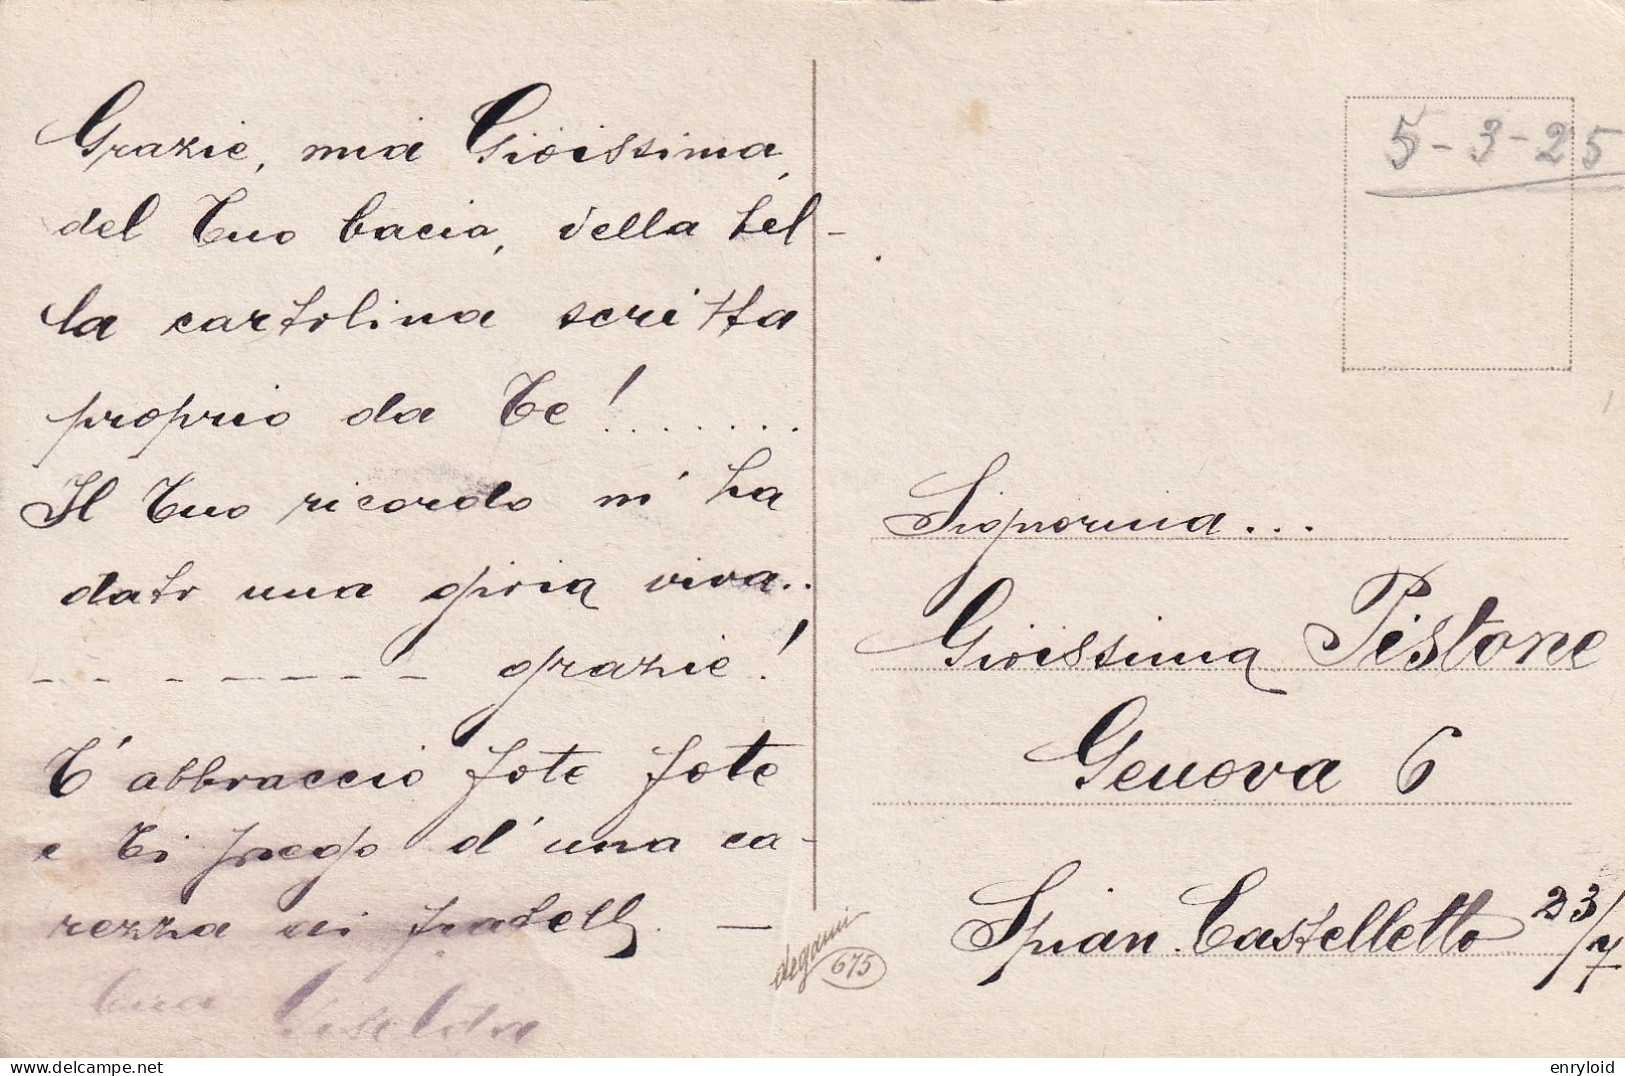 Grazie, mia Gioissima,
del Tuo bacio, della bel-
la cartolina scritta
proprio da Te! .......
Il Tuo ricordo m'ha
dato una gioia viva..
-- - - - - - - grazie!
T'abbraccio forte forte
e Ti prego d'una ca-
rezza ai fratelli. —
tua
5-3-25
Signorina...
Gioissima Pistone
Genova 6
Spian. Castelletto 23/7
degami
675
delcampe.net
enryloid